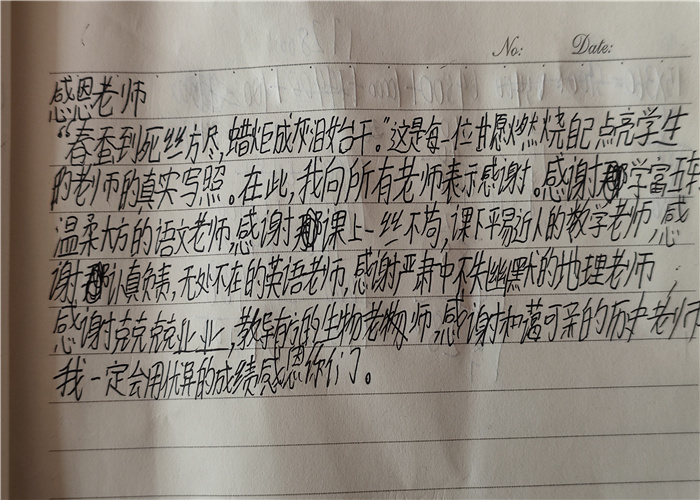 No: Date:
感恩老师
“春蚕到死丝方尽,蜡炬成灰泪始干。”这是每一位甘愿燃烧自己点亮学生
的老师的真实写照。在此,我向所有老师表示感谢。感谢那学富五车
温柔大方的语文老师,感谢那课上一丝不苟,课下平易近人的数学老师,感
谢那认真负责,无处不在的英语老师,感谢严肃中不失幽默的地理老师
感谢兢兢业业,教导有方的生物老师,感谢和蔼可亲的历史老师
我一定会用优异的成绩感恩你们。